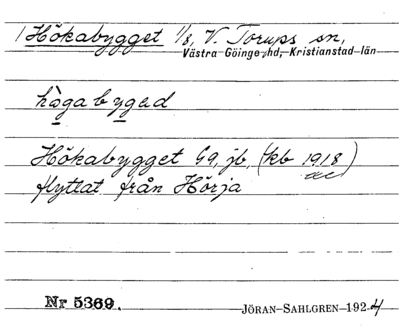 1 Hökabygget 1/8, V. Torups sn,
Västra Göinge hd, Kristianstad län
högabygəd
Hökabygget Gg, jb, (kb 1918)
flyttat från Hörja
Nr 5369.
JÖRAN SAHLGREN 1924